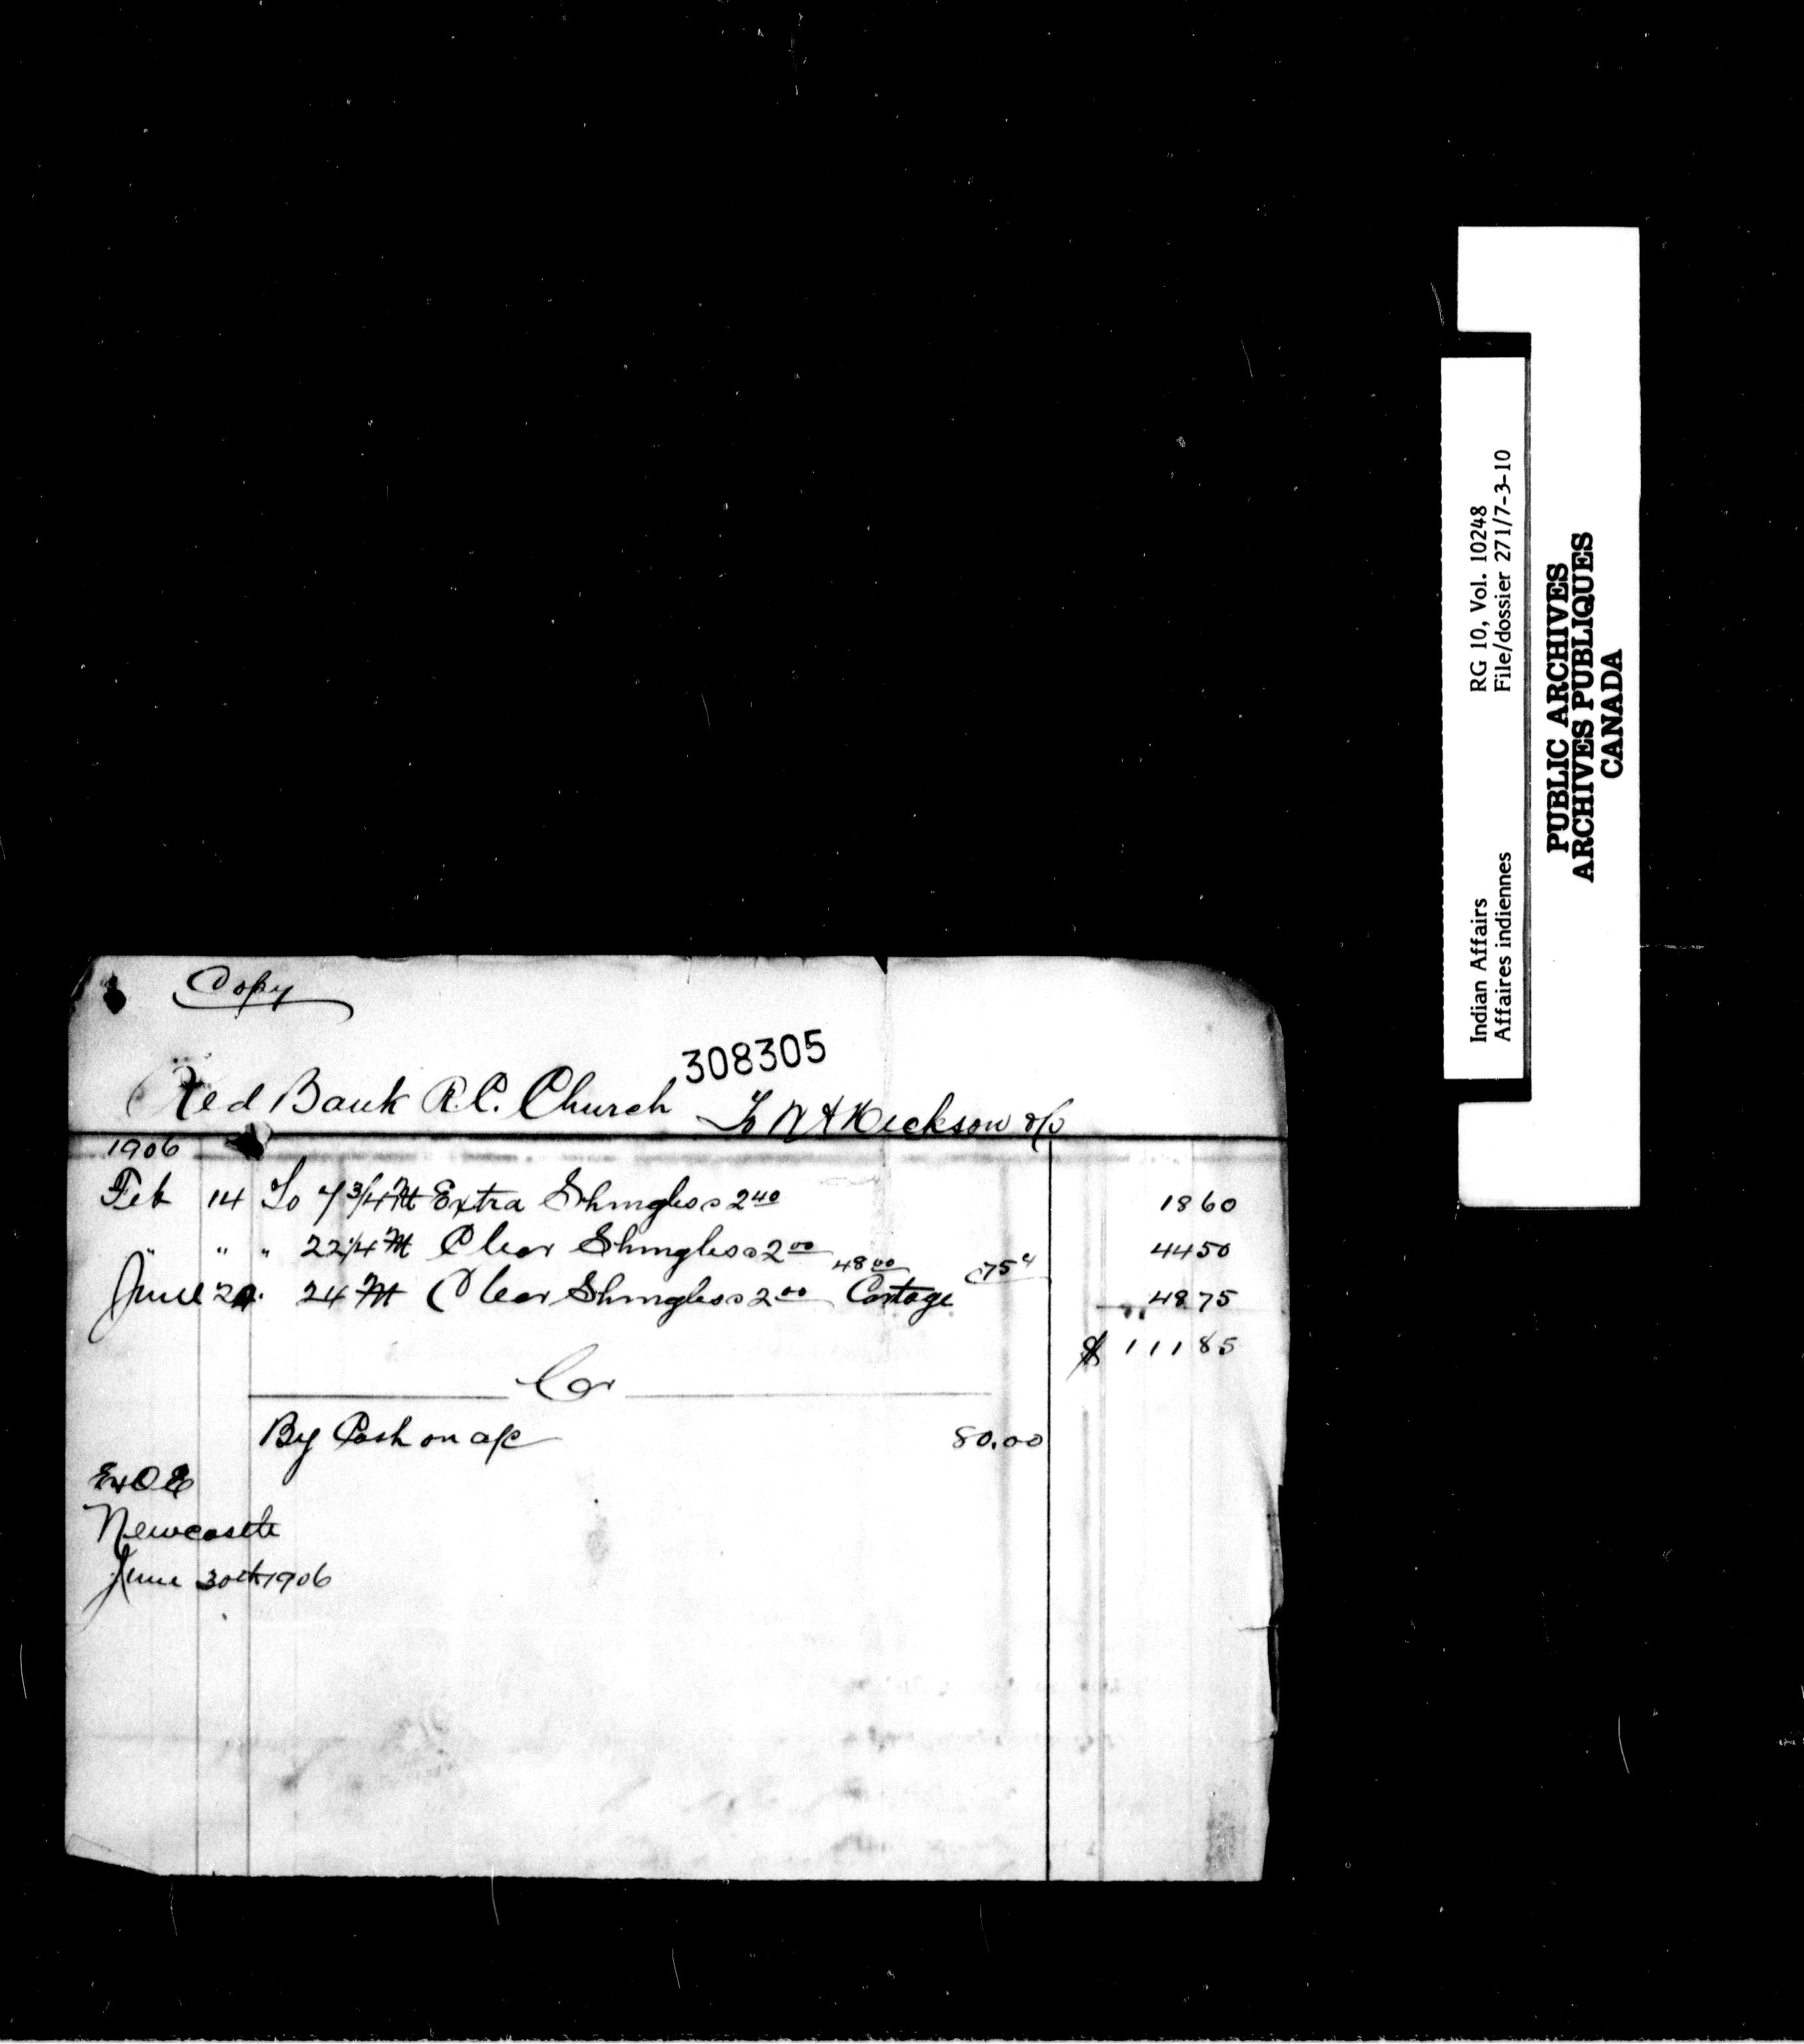 Copy
308305
Red Bank R.C. Church To Hickson
1906
Feb 14 To 7 3/4 M Extra Shingles 2 40 18 60
" " " 22 1/4 M Clear Shingles 2 00 44 50
48 00 75
June 24 M Clear Shingles 2 00 Cartage 48 75
$ 111 85
Cr
By Cash on a/c 80.00
E & O E
Newcastle
June 30th 1906
RG 10, Vol. 10248
File/dossier 271/7-3-10
Indian Affairs
Affaires indiennes
PUBLIC ARCHIVES
ARCHIVES PUBLIQUES
CANADA